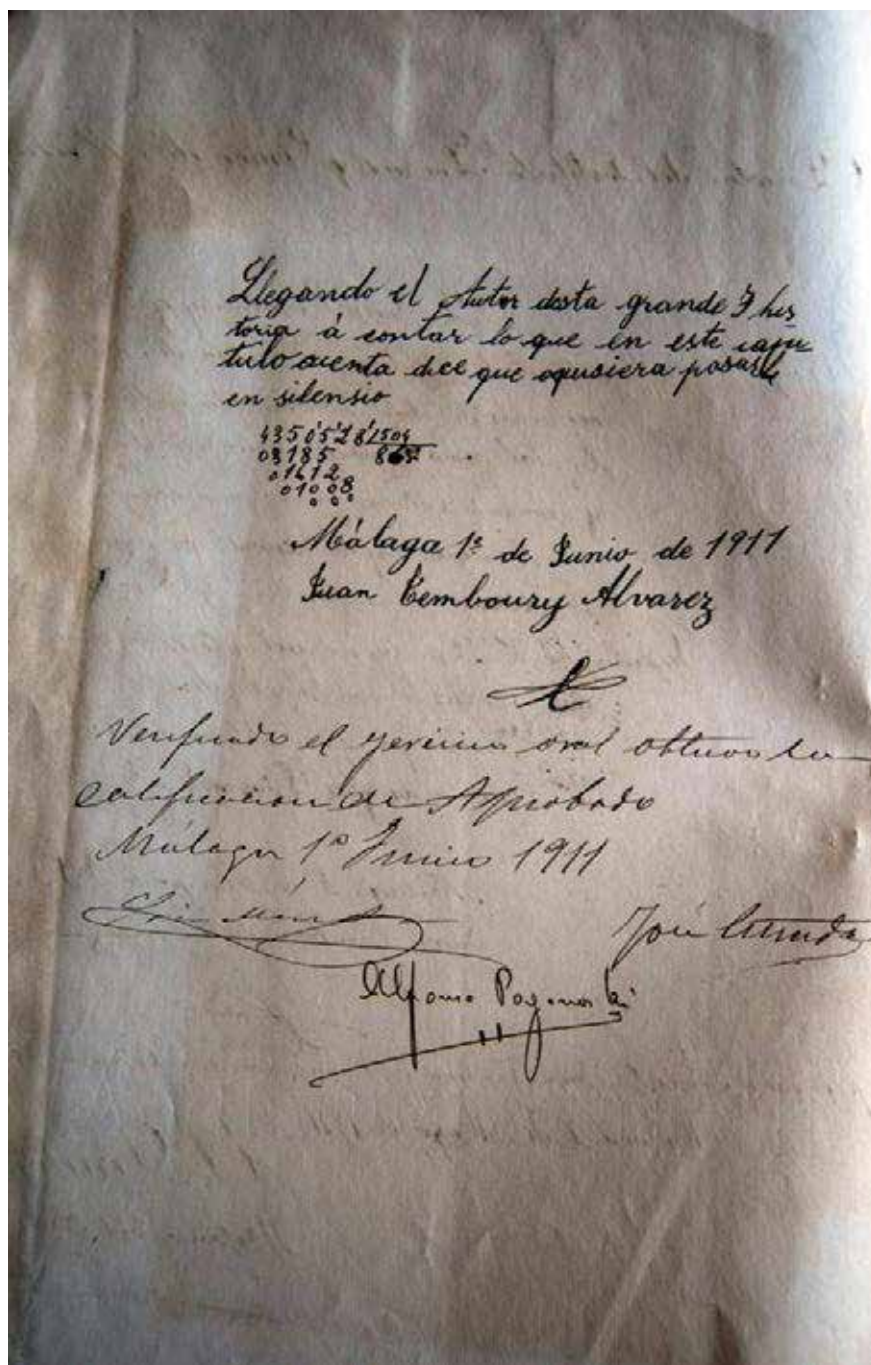 Llegando el Autor desta grande I his
toria á contar lo que en este capi
tulo cuenta dice que quisiera pasarlo
en silensio
4350528 504
03185 8632
01612
01008
000
Málaga 1º de Junio de 1911
Juan Temboury Alvarez
Verificado el gercicio oral obtuvo la
calificacion de Aprobado
Málaga 1º Junio 1911
José
Alfonso